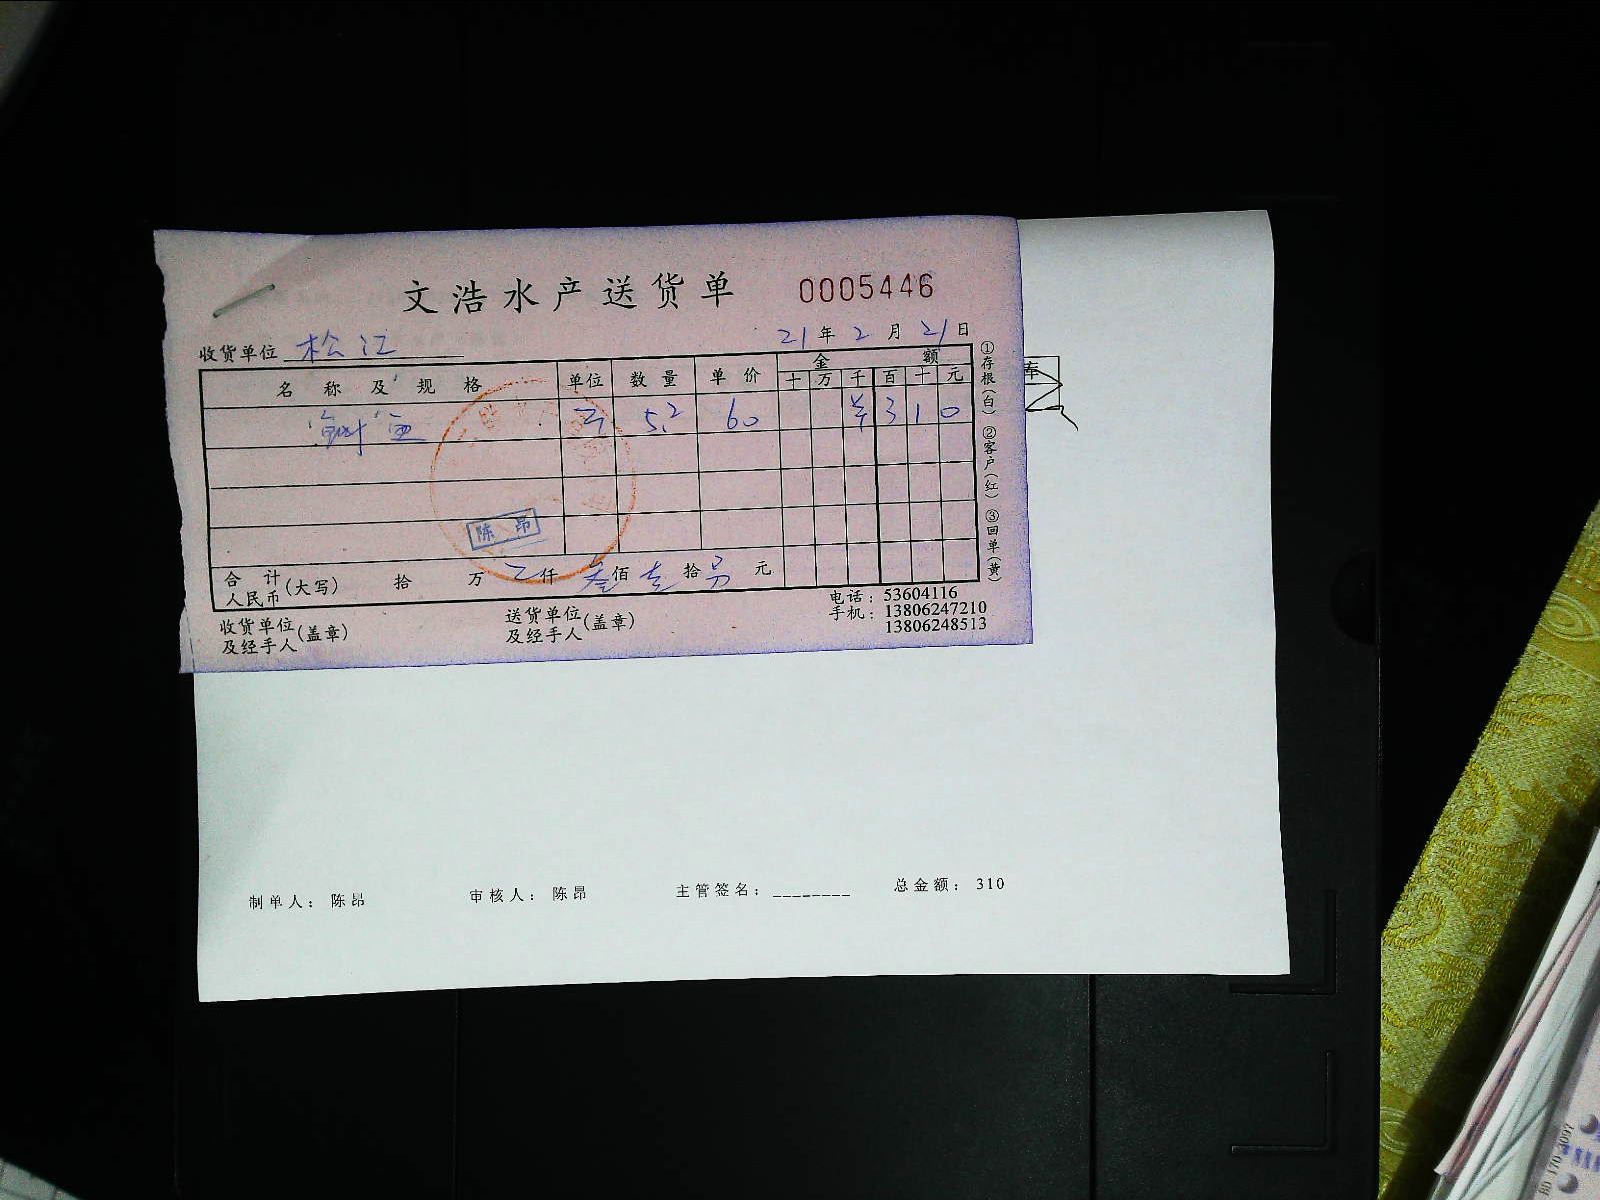 文浩水产送货单 0005446
收货单位 松江 21年2月21日
名称及规格 单位 数量 单价 金额
十 万 千 百 十 元
斤 5.2 60 ¥ 3 1 0
陈昂
合计人民币(大写) 拾 万 仟 叁佰 壹拾 元
收货单位及经手人(盖章) 送货单位及经手人(盖章)
电话:53604116
手机:13806247210
13806248513
①存根(白) ②客户(红) ③回单(黄)
库
制单人: 陈昂 审核人: 陈昂 主管签名:________ 总金额: 310